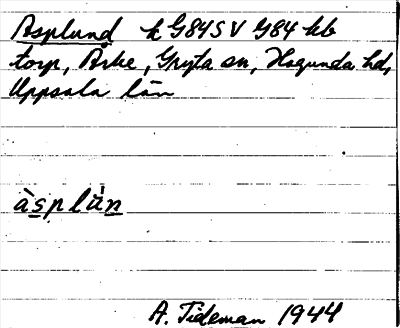 Asplund k G84SV G84 kb
torp, Arke, Gryta sn, Hagunda hd,
Uppsala län
àsplùn
A. Tideman 1944